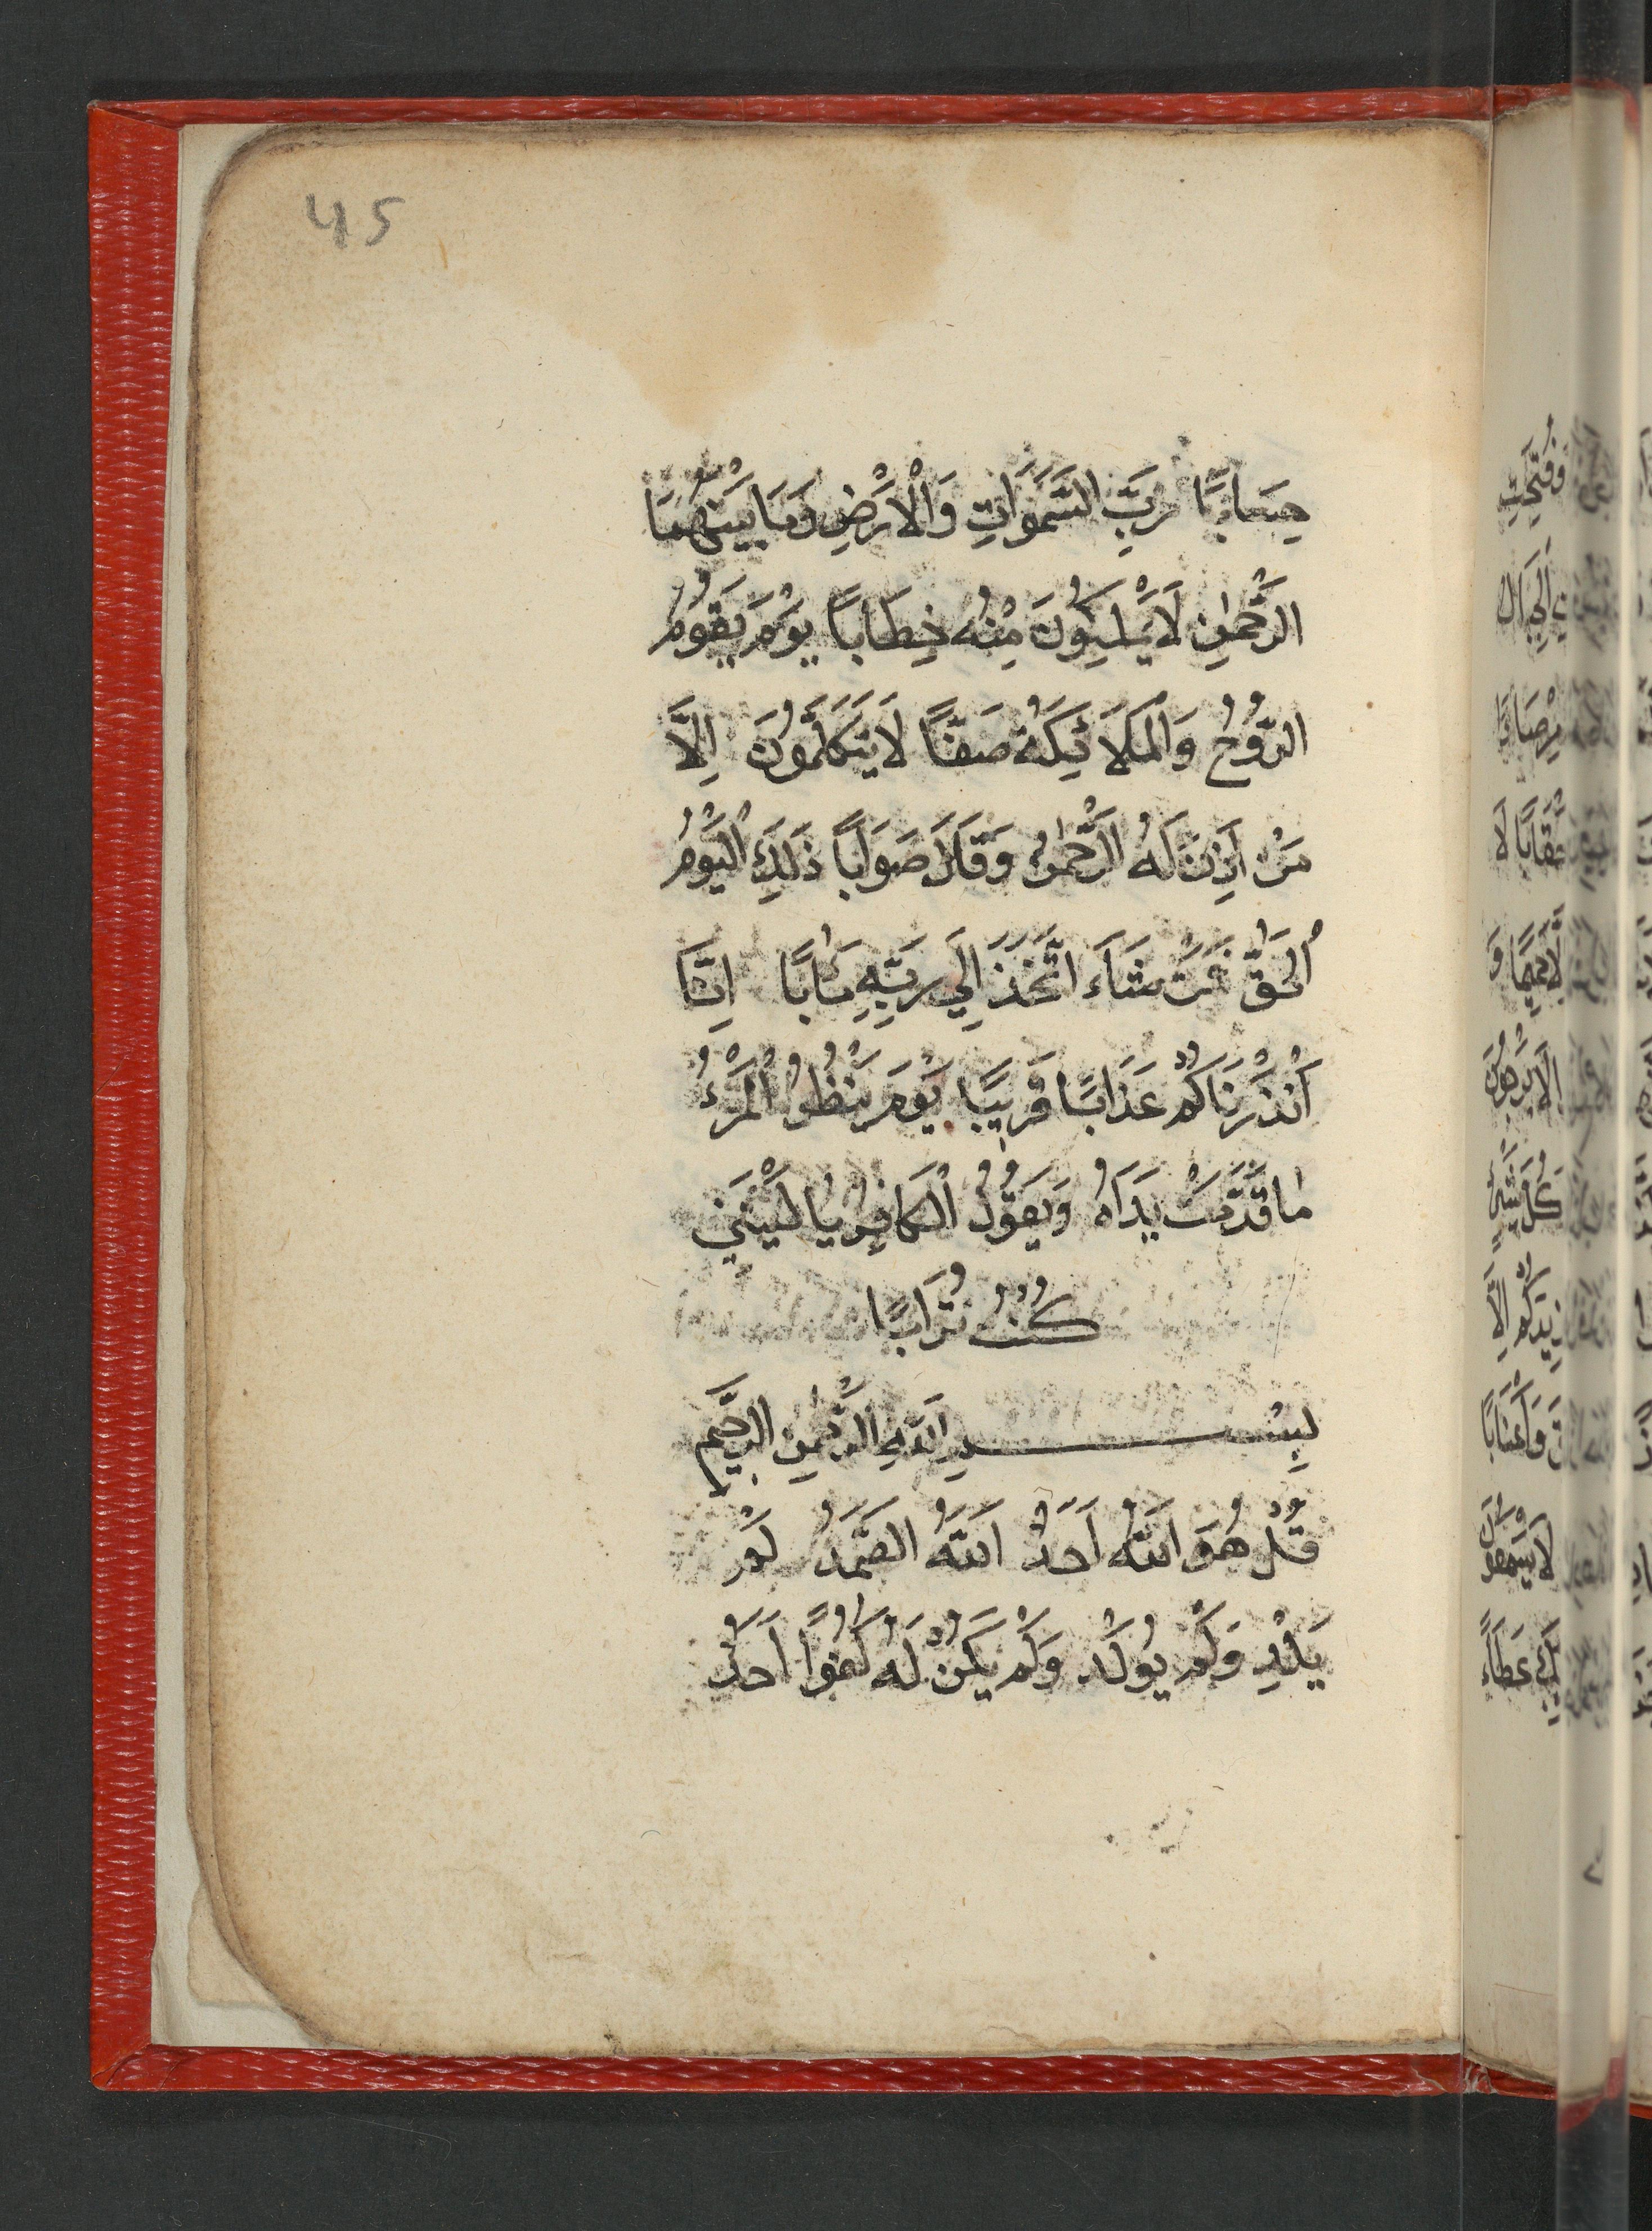 45
حِسَابًا رَبِّ السَّمَوَاتِ وَالْاَرْضِ وَمَا بَيْنَهُمَا
الرَّحْمٰنِ لَا يَمْلِكُونَ مِنْهُ خِطَابًا يَوْمَ يَقُومُ
الرُّوْحُ وَالْمَلَائِكَةُ صَفًّا لَا يَتَكَلَّمُونَ اِلَّا
مَنْ اَذِنَ لَهُ الرَّحْمٰنُ وَقَالَ صَوَابًا ذَلِكَ الْيَوْمُ
الْحَقُّ فَمَنْ شَاءَ اتَّخَذَ اِلَي رَبِّهِ مَاٰبًا اِنَّا
اَنْذَرْنَاكُمْ عَذَابًا قَرِيبًا يَوْمَ يَنْظُرُ الْمَرْءُ
مَا قَدَّمَتْ يَدَاهُ وَيَقُوْلُ الْكَافِرُ يَا لَيْتَنِي
كُنْتُ تُرَابًا
بِسْمِ اللّٰهِ الرَّحْمٰنِ الرَّحِيْمِ
قُلْ هُوَ اللّٰهُ اَحَدٌ اَللّٰهُ الصَّمَدُ لَمْ
يَلِدْ وَلَمْ يُولَدْ وَلَمْ يَكُنْ لَهُ كُفُوًا اَحَدٌ
وَفُتِحَتِ
مِرْصَادًا
اَحْقَابًا لَا
اِلَّا حَمِيْمًا وَ
كُلَّ شَيْءٍ
نَزِيْدَكُمْ اِلَّا
وَاَعْنَابًا
لَا يَسْمَعُوْنَ
عَطَاءً